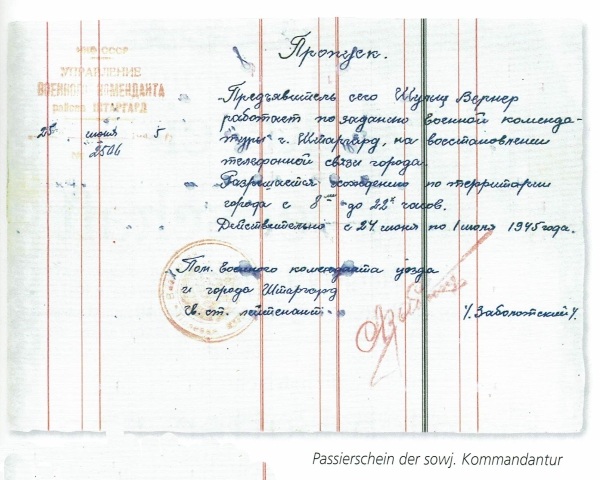 Пропуск.
НКО СССР
УПРАВЛЕНИЕ
ВОЕННОГО КОМЕНДАНТА
района ШТАРГАРД
25 июня 5
2506
Предъявитель сего Шульц Вернер
работает по заданию военной коменда-
туры г. Штаргард, на восстановлении
телефонной связи города.
Разрешается хождение по территории
города с 8 до 22 часов.
Действительно с 24 июня по 1 июля 1945 года.
Пом. военного коменданта уезда
и города Штаргард
гв. ст. лейтенант /. Заболотский /.
Passierschein der sowj. Kommandantur